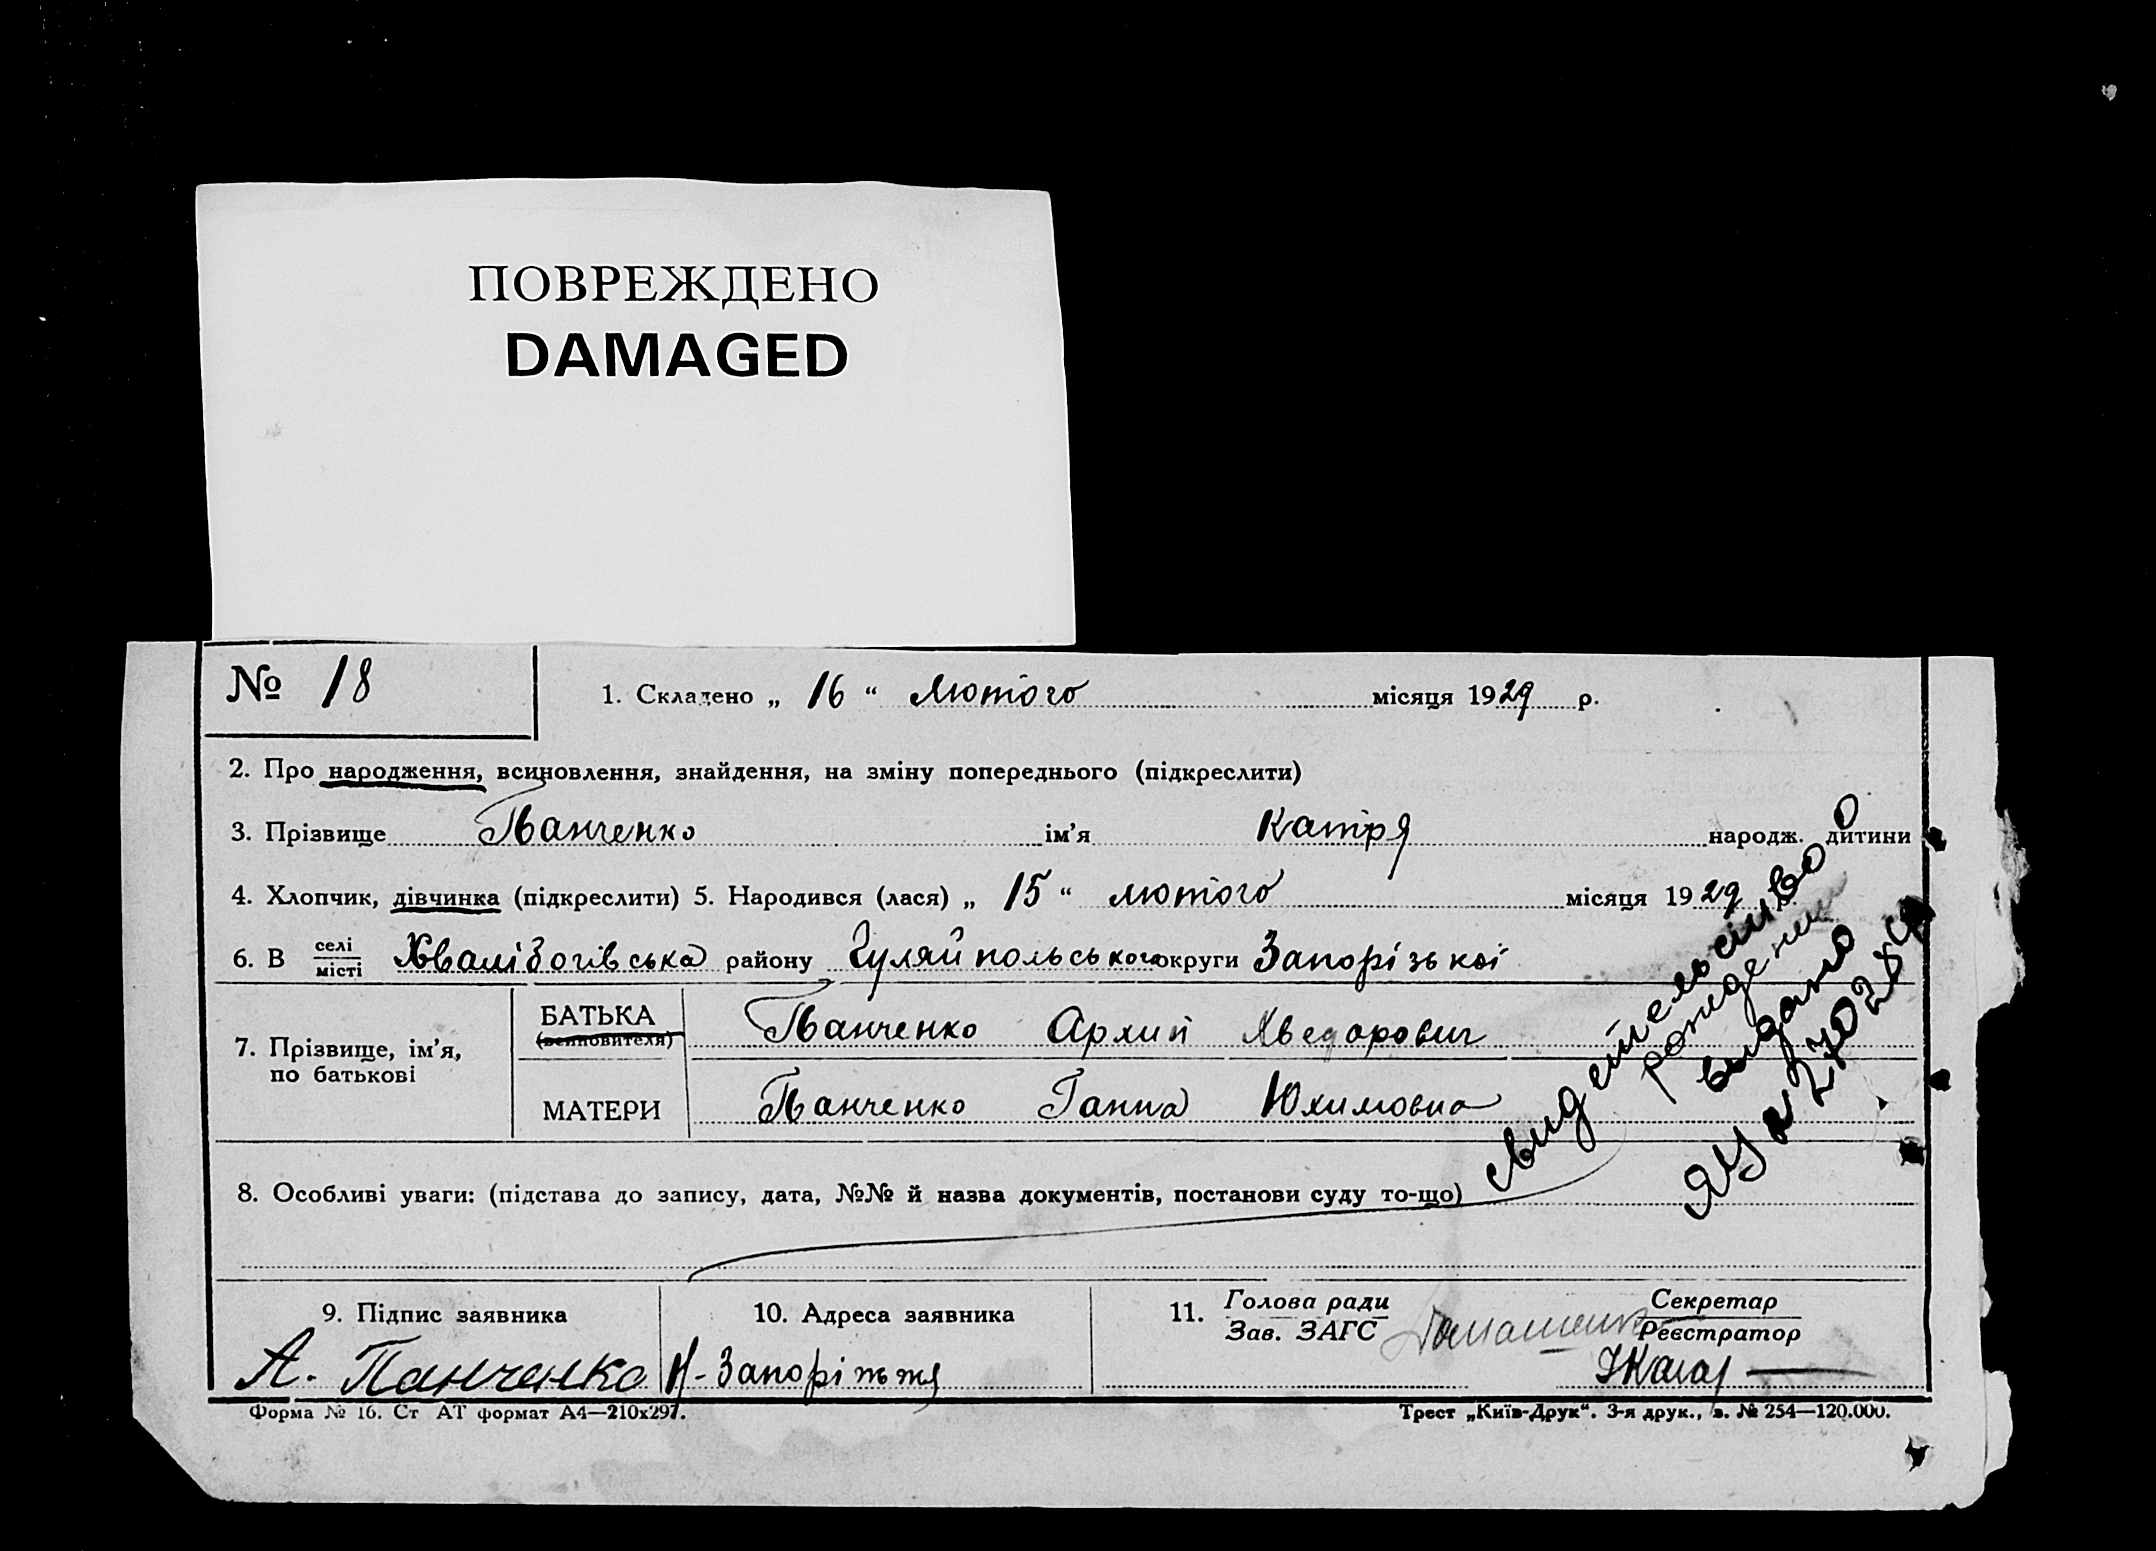 ПОВРЕЖДЕНО
DAMAGED
№ 18
1. Складено „ 16 “ Лютого місяця 1929 р.
2. Про народження, всиновлення, знайдення, на зміну попереднього (підкреслити)
3. Прізвище Панченко ім’я Катря народж. дитини
4. Хлопчик, дівчинка (підкреслити) 5. Народився (лася) „ 15 “ лютого місяця 1929
6. В селі місті Хвалібогівська району Гуляйпольського округи Запорізькоі
7. Прізвище, ім’я, по батькові
БАТЬКА (всиновителя) Панченко Архип Хведорович
МАТЕРИ Панченко Ганна Юхимовна
свидетельство о
рождении
выдано
8. Особливі уваги: (підстава до запису, дата, №№ й назва документів, постанови суду то-що)
9. Підпис заявника
А. Панченко
10. Адреса заявника
Н-Запоріжжя
11. Голова ради Зав. ЗАГС
Секретар Реєстратор
Форма № 16. Ст АТ формат А4—210х297.
Трест „Київ-Друк“. 3-я друк., з. № 254—120.000.